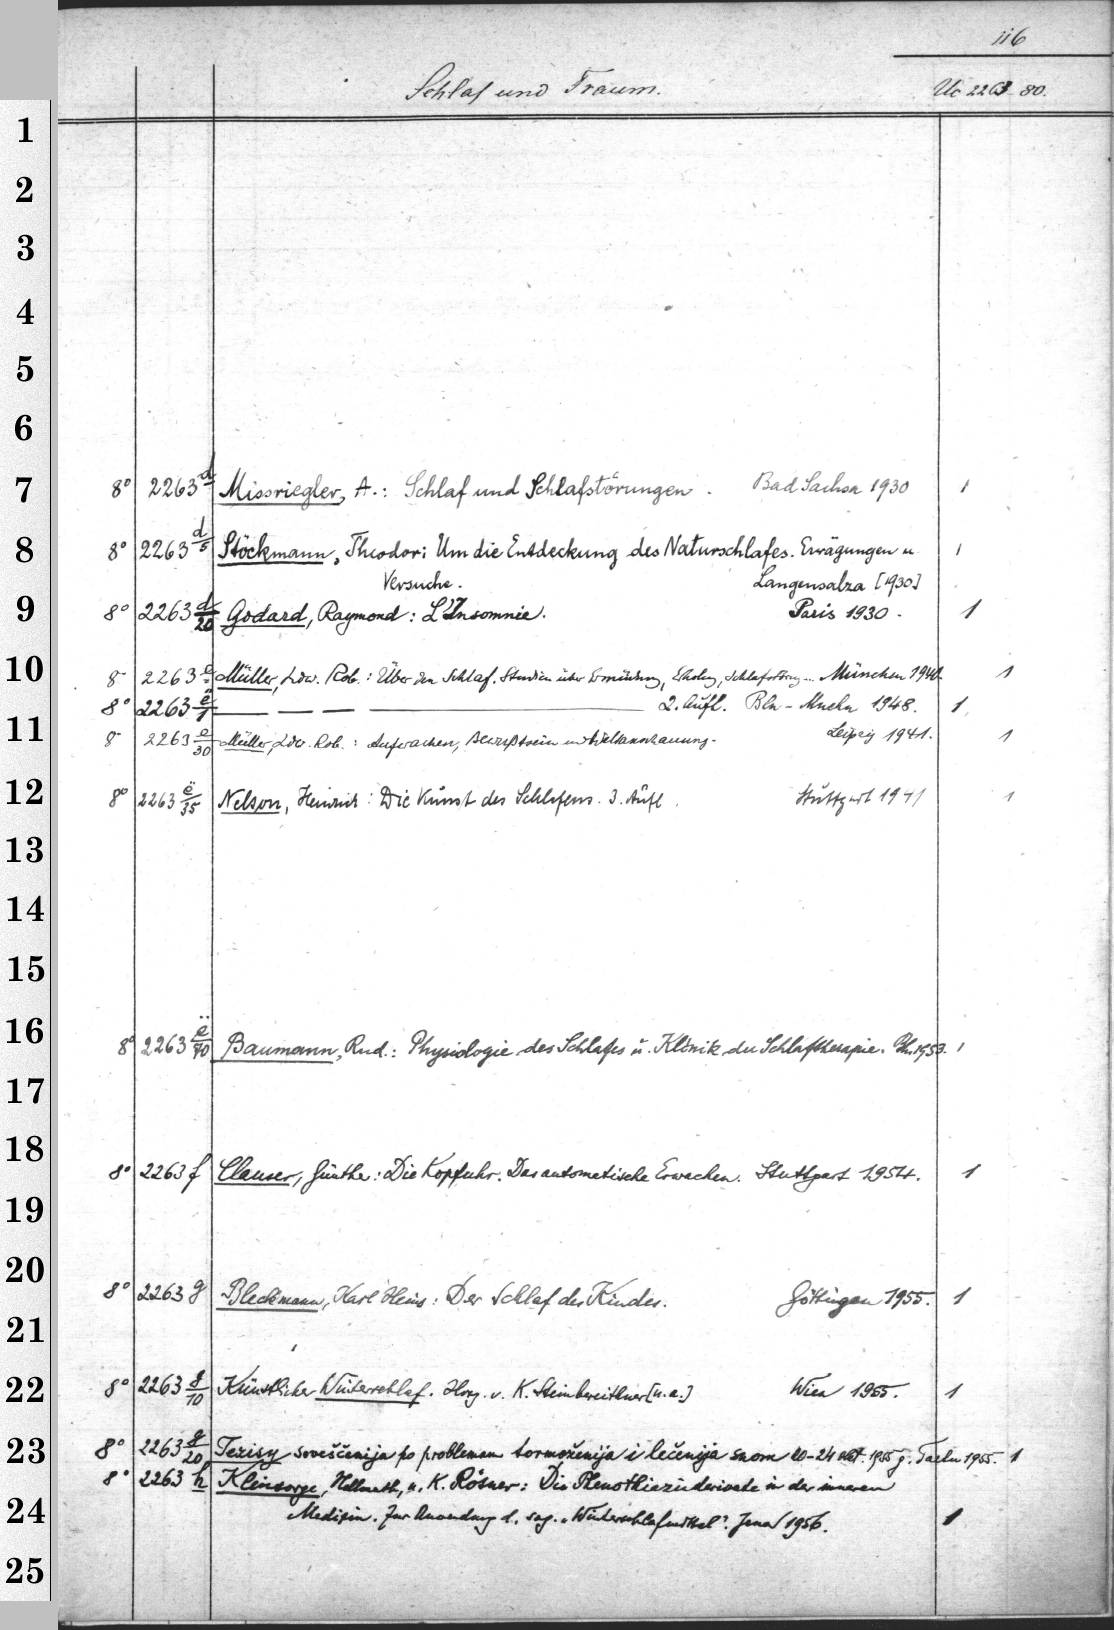 116
Schlaf und Traum.
Uc 2263-80.
1
2
3
4
5
6
7 8° 2263 d Missriegler, A.: Schlaf und Schlafstörungen. Bad Sachsa 1930 1
8 8° 2263 d/5 Stöckmann, Theodor: Um die Entdeckung des Naturschlafes. Erwägungen u. 1
Versuche. Langensalza [1930]
9 8° 2263 d/20 Godard, Raymond: L'Insomnie. Paris 1930. 1
10 8° 2263 e Müller, Ldw. Rob.: Über den Schlaf. Studien über Ermüdung, Erholg, Schlafstörg... München 1940. 1
8° 2263 ë/1 — — — 2. Aufl. Bln-Mnchn 1948. 1
11 8° 2263 e/30 Müller, Ldw. Rob.: Aufwachen, Bewußtsein und Weltanschauung. Leipzig 1941. 1
12 8° 2263 ë/35 Nelson, Heinrich: Die Kunst des Schlafens. 3. Aufl. Stuttgart 1941 1
13
14
15
16 8° 2263 ë/40 Baumann, Rud.: Physiologie des Schlafes u. Klinik der Schlaftherapie. 1953. 1
17
18 8° 2263 f Clauser, Günther: Die Kopfuhr. Das automatische Erwachen. Stuttgart 1954. 1
19
20 8° 2263 g Bleckmann, Karl Heinz: Der Schlaf des Kindes. Göttingen 1955. 1
21
22 8° 2263 g/10 Künstlicher Winterschlaf. Hrsg. v. K. Steinbereithner [u.a.] Wien 1955. 1
23 8° 2263 g/20 Tezisy soveščanija po problemam tormoženija i lečenija snom 20-24 1955 g. 1955. 1
8° 2263 h Kleinsorge, Hellmuth, u. K. Rösner: Die Phenothiazinderivate in der inneren
24 Medizin. Zur Anwendung d. sog. "Winterschlafmittel". Jena 1956. 1
25